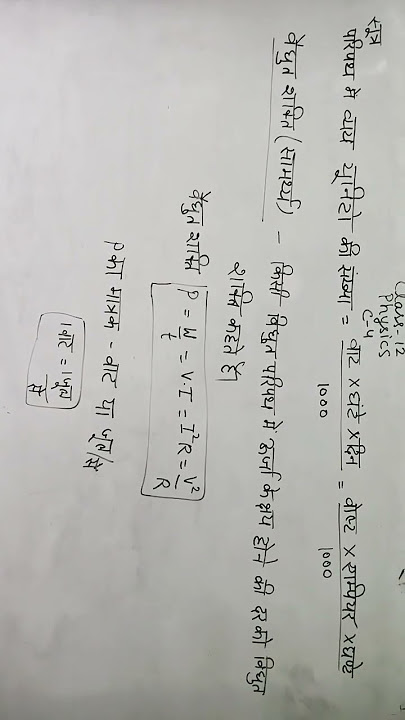 Class-12
Physics
C-4
सूत्र
परिपथ में व्यय यूनिटों की संख्या = वाट × घंटे × दिन / 1000 = वोल्ट × एम्पियर × घण्टे / 1000
वैद्युत शक्ति (सामर्थ्य) - किसी विद्युत परिपथ में ऊर्जा के क्षय होने की दर को विद्युत
शक्ति कहते हैं।
वैद्युत शक्ति
P = W/t = V·I = I²R = V²/R
P का मात्रक - वाट या जूल/से
1 वाट = 1 जूल/से